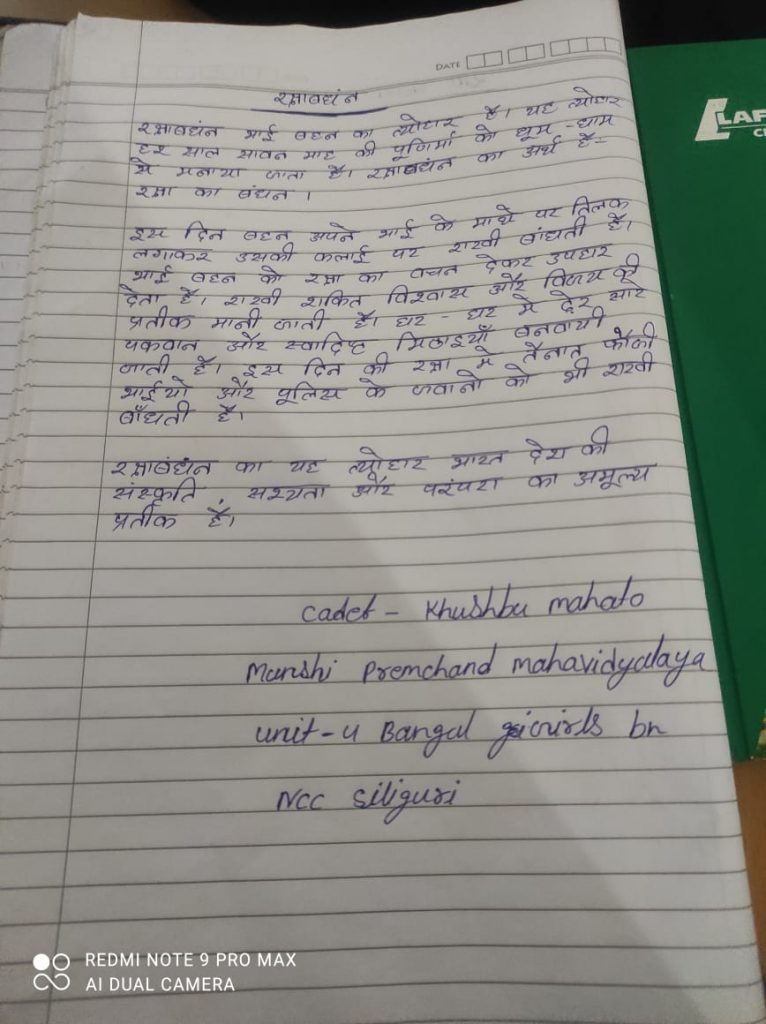 DATE
रक्षाबधंन
रक्षाबधंन भाई बहन का त्योहार है। यह त्योहार
हर साल सावन माह की पूणिर्मा को धूम - धाम
से मनाया जाता है। रक्षाबधंन का अर्थ है-
रक्षा का बंधन ।
इस दिन बहन अपने भाई के माथे पर तिलक
लगाकर उसकी कलाई पर राखी बाँधती है।
भाई बहन को रक्षा का वचन देकर उपहार
देता है। राखी शक्ति विश्वास और विजय की
प्रतीक मानी जाती है। घर - घर मे ढेर सारे
पकवान और स्वादिष्ट मिठाइयाँ बनवायी
जाती है। इस दिन की रक्षा मे तैनात फौजी
भाईयो और पूलिस के जवानो को भी राखी
बाँधती है।
रक्षाबंधंन का यह त्योहार भारत देश की
संस्कृति , सभ्यता और परंपरा का अमूल्य
प्रतीक है।
Cadet - Khushbu mahato
Munshi Premchand mahavidyalaya
unit-4 Bangal girls bn
NCC Siliguri
REDMI NOTE 9 PRO MAX
AI DUAL CAMERA